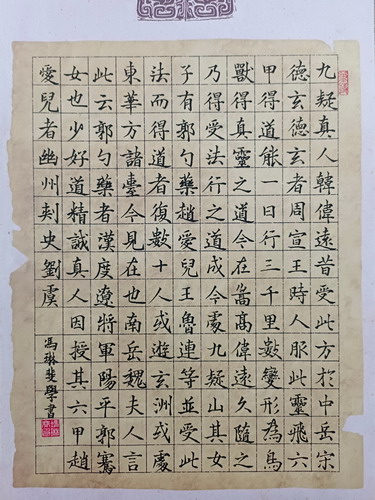 九疑真人韓偉遠昔受此方於中岳宋
德玄德玄者周宣王時人服此靈飛六
甲得道能一日行三千里數變形為鳥
獸得真靈之道今在嵩高偉遠久隨之
乃得受法行之道成今處九疑山其女
子有郭勺藥趙愛兒王魯連等並受此
法而得道者復數十人或遊玄洲或處
東華方諸臺今見在也南岳魏夫人言
此云郭勺藥者漢度遼將軍陽平郭騫
女也少好道精誠真人因授其六甲趙
愛兒者幽州刾史劉虞
馮琳斐學書